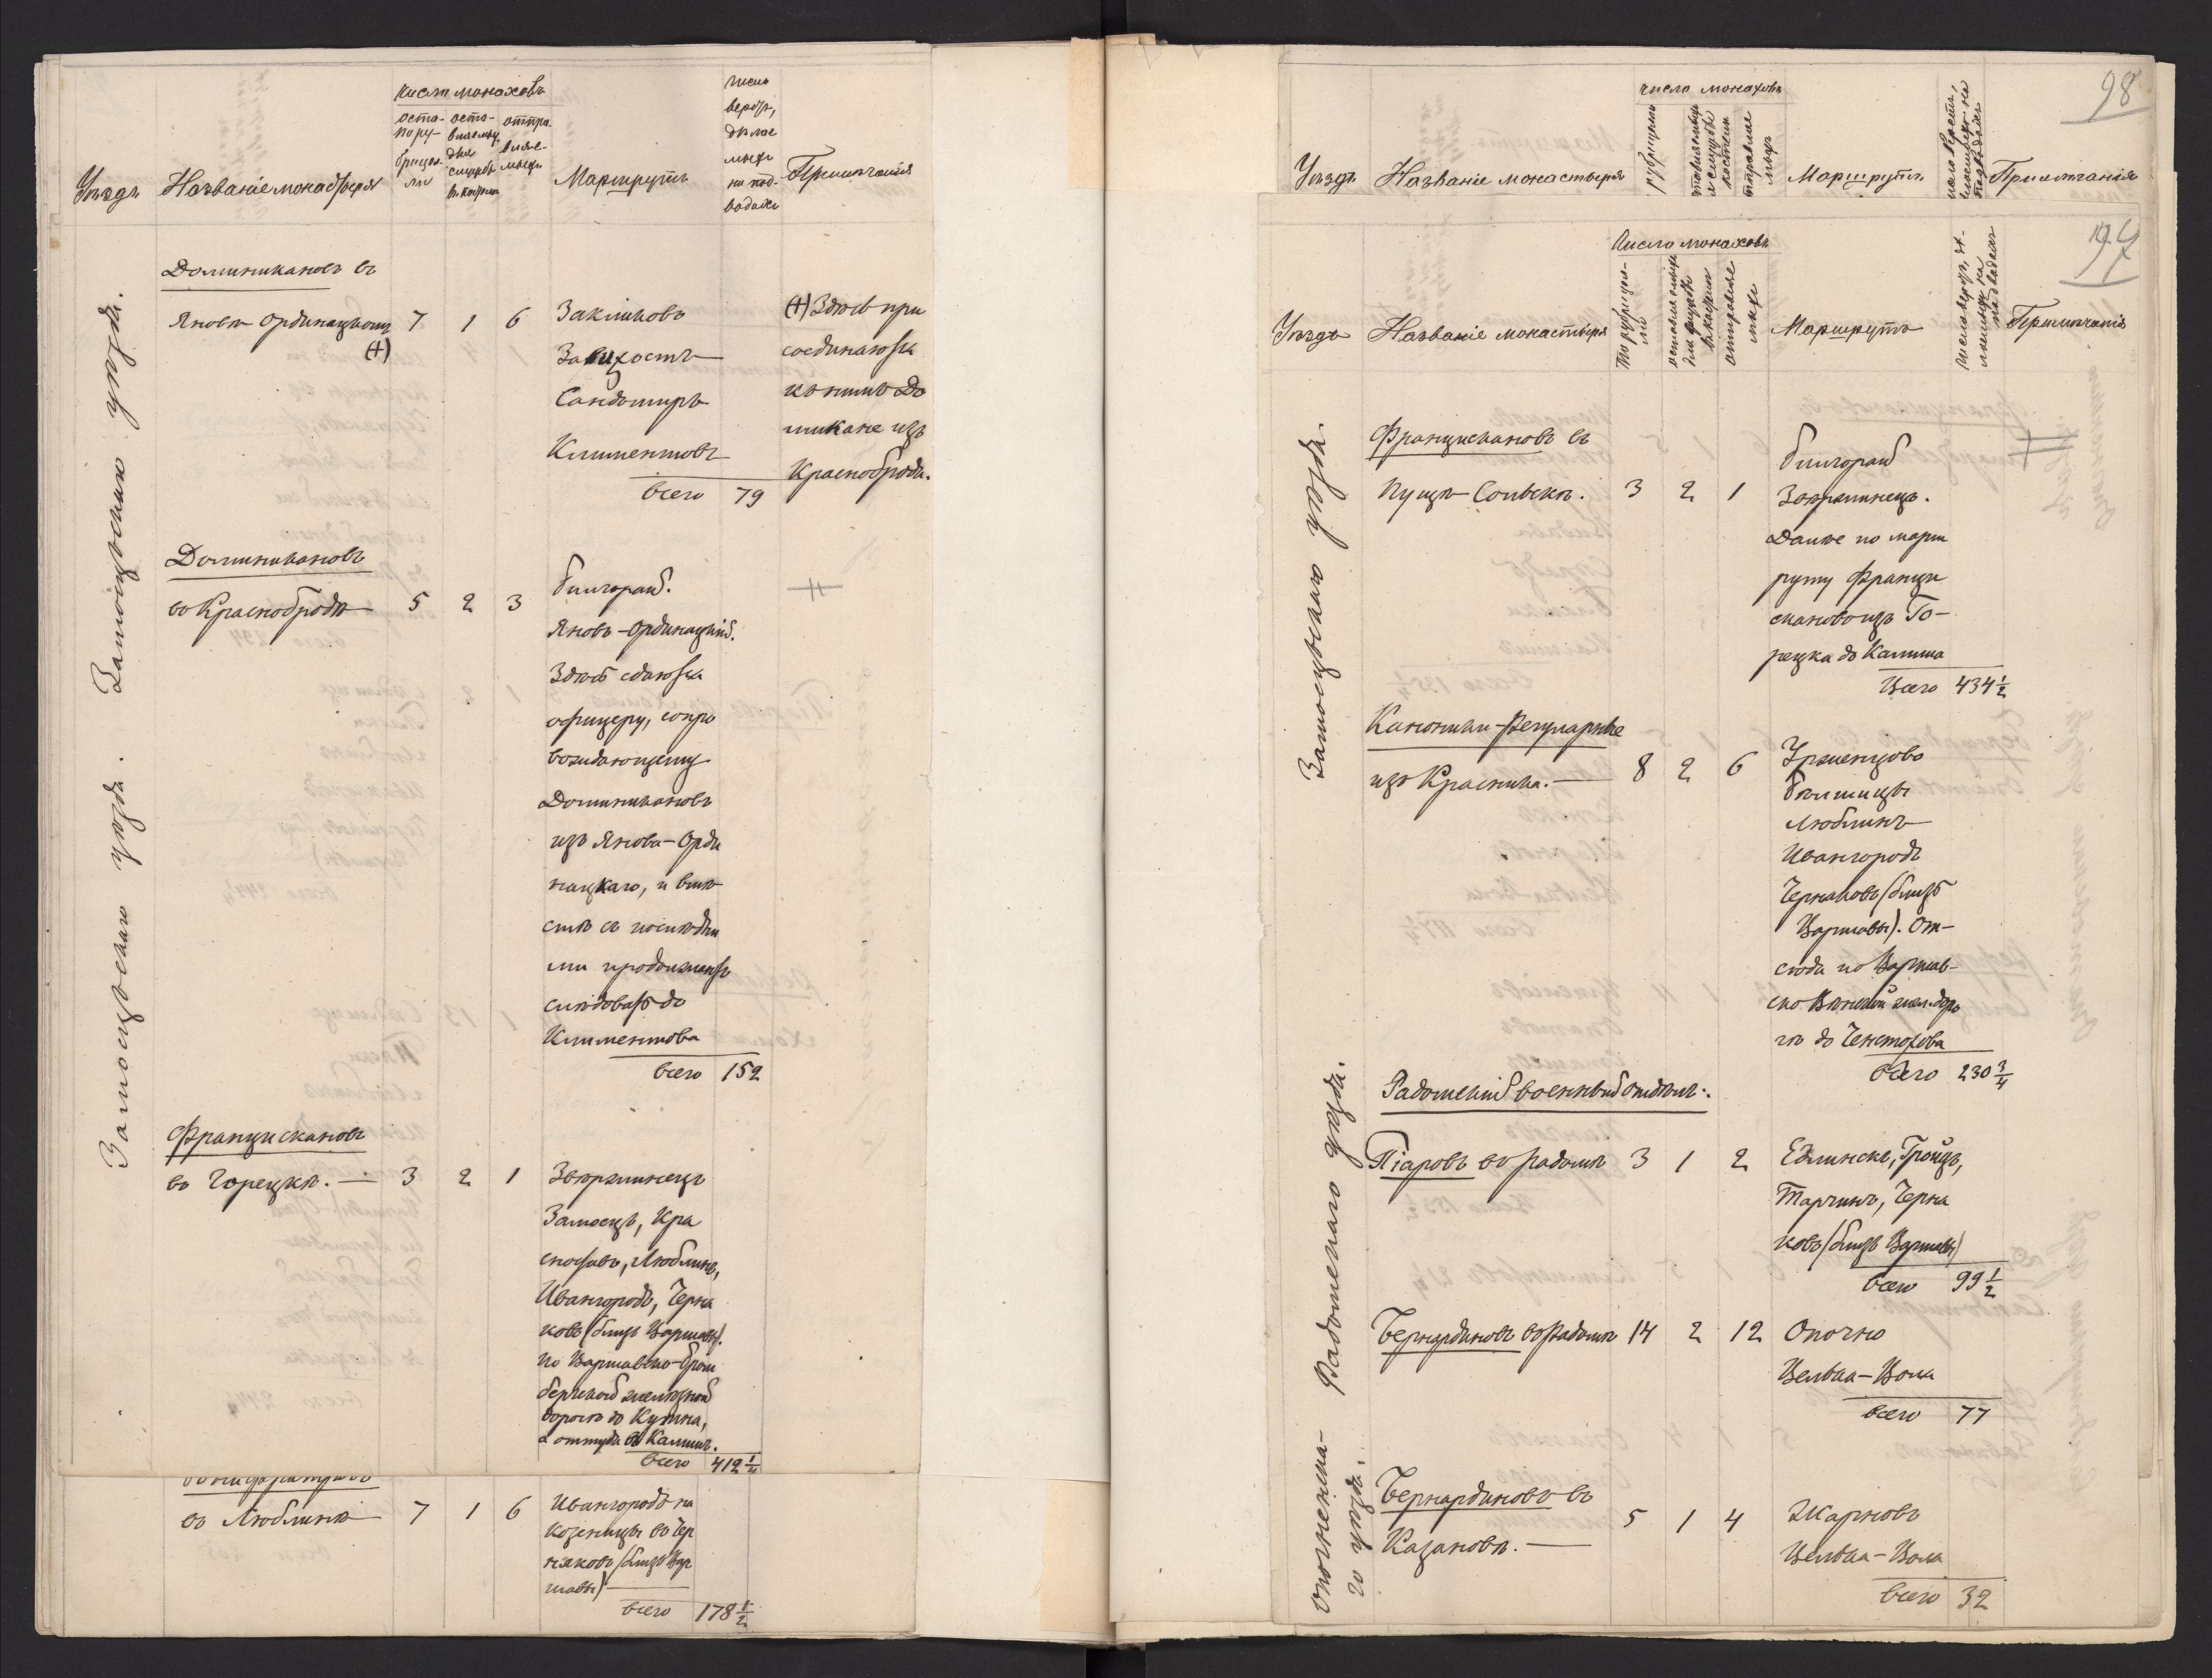 Уѣздъ
Названіе монастыря
число монаховъ
оста- оста- отпра
по ру- вляемы вляе-
брицел- для мыхъ
ли
Маршрутъ
число
верстъ,
дѣлае
мыхъ
на под-
водахъ
Примѣчанія
Замостьскаго уѣзда. Замостьскаго уѣзда.
Доминикановъ въ
Яновѣ Ординацкомъ 7 1 6 Закликовъ
(+)
Завихостъ
Сандомиръ
Климентовъ
всего 79
(+) Здѣсь при
соединаются
къ нимъ До
микане изъ
Красноброда.
Доминикановъ
въ Краснобродѣ 5 2 3 Билгорай.
Яновъ-Ординацкій.
Здѣсь сдаются
офицеру, сопро
вождающему
Доминикановъ
изъ Янова-Орди
нацкаго, и вмѣ
стѣ съ послѣдни
ми продолжаютъ
слѣдовать до
Климентова
всего 152
Францискановъ
въ Горецкѣ. 3 2 1 Звержинецъ
Замосцъ, Кра
сноставъ, Люблинъ,
Ивангородъ, Черня
ковъ (близь Варшавы).
по Варшавско-Бром
бергской желѣзной
дорогѣ до Кутна,
а оттуда въ Калишъ.
всего 412 1/4
въ Люблинѣ 7 1 6 Ивангородъ на
Козеницы въ Чер
няковъ (близь Вар
шавы)
всего 178 1/2
98
Уѣздъ Названіе монастыря
число монаховъ
Маршрутъ
Примѣчанія
97
Уѣздъ Названіе монастыря
Число монаховъ
по рубрицел-
ли
оставляемыхъ
отправляе
мыхъ
Маршрутъ
Примѣчанія
Замостьскаго уѣзда.
Францискановъ въ
Пущѣ-Сольскѣ. 3 2 1 Билгорай
Звержинецъ.
Далѣе по марш
руту Франци
скановъ изъ Го-
рецка до Калиша
Всего 434 1/2
Каноники-Регулярные
изъ Красника. 8 2 6 Уржендовъ
Бѣлжицы
Люблинъ
Ивангородъ
Черняковъ (близь
Варшавы). От-
сюда по Варшав-
ско Вѣнской жел. доро
гѣ до Ченстохова
всего 230 3/4
Радомскій военный отдѣлъ.
Радомскаго уѣзда.
Піаровъ въ Радомѣ 3 1 2 Едлинскъ, Гройцъ,
Тарчинъ, Черня
ковъ (близь Варшавы)
всего 99 1/2
Бернардиновъ въ Радомѣ 14 2 12 Опочно
Велька-Воля
всего 77
Опоченска-
го уѣзда.
Бернардиновъ въ
Казановѣ. 5 1 4 Жарновъ
Велька-Воля
всего 32